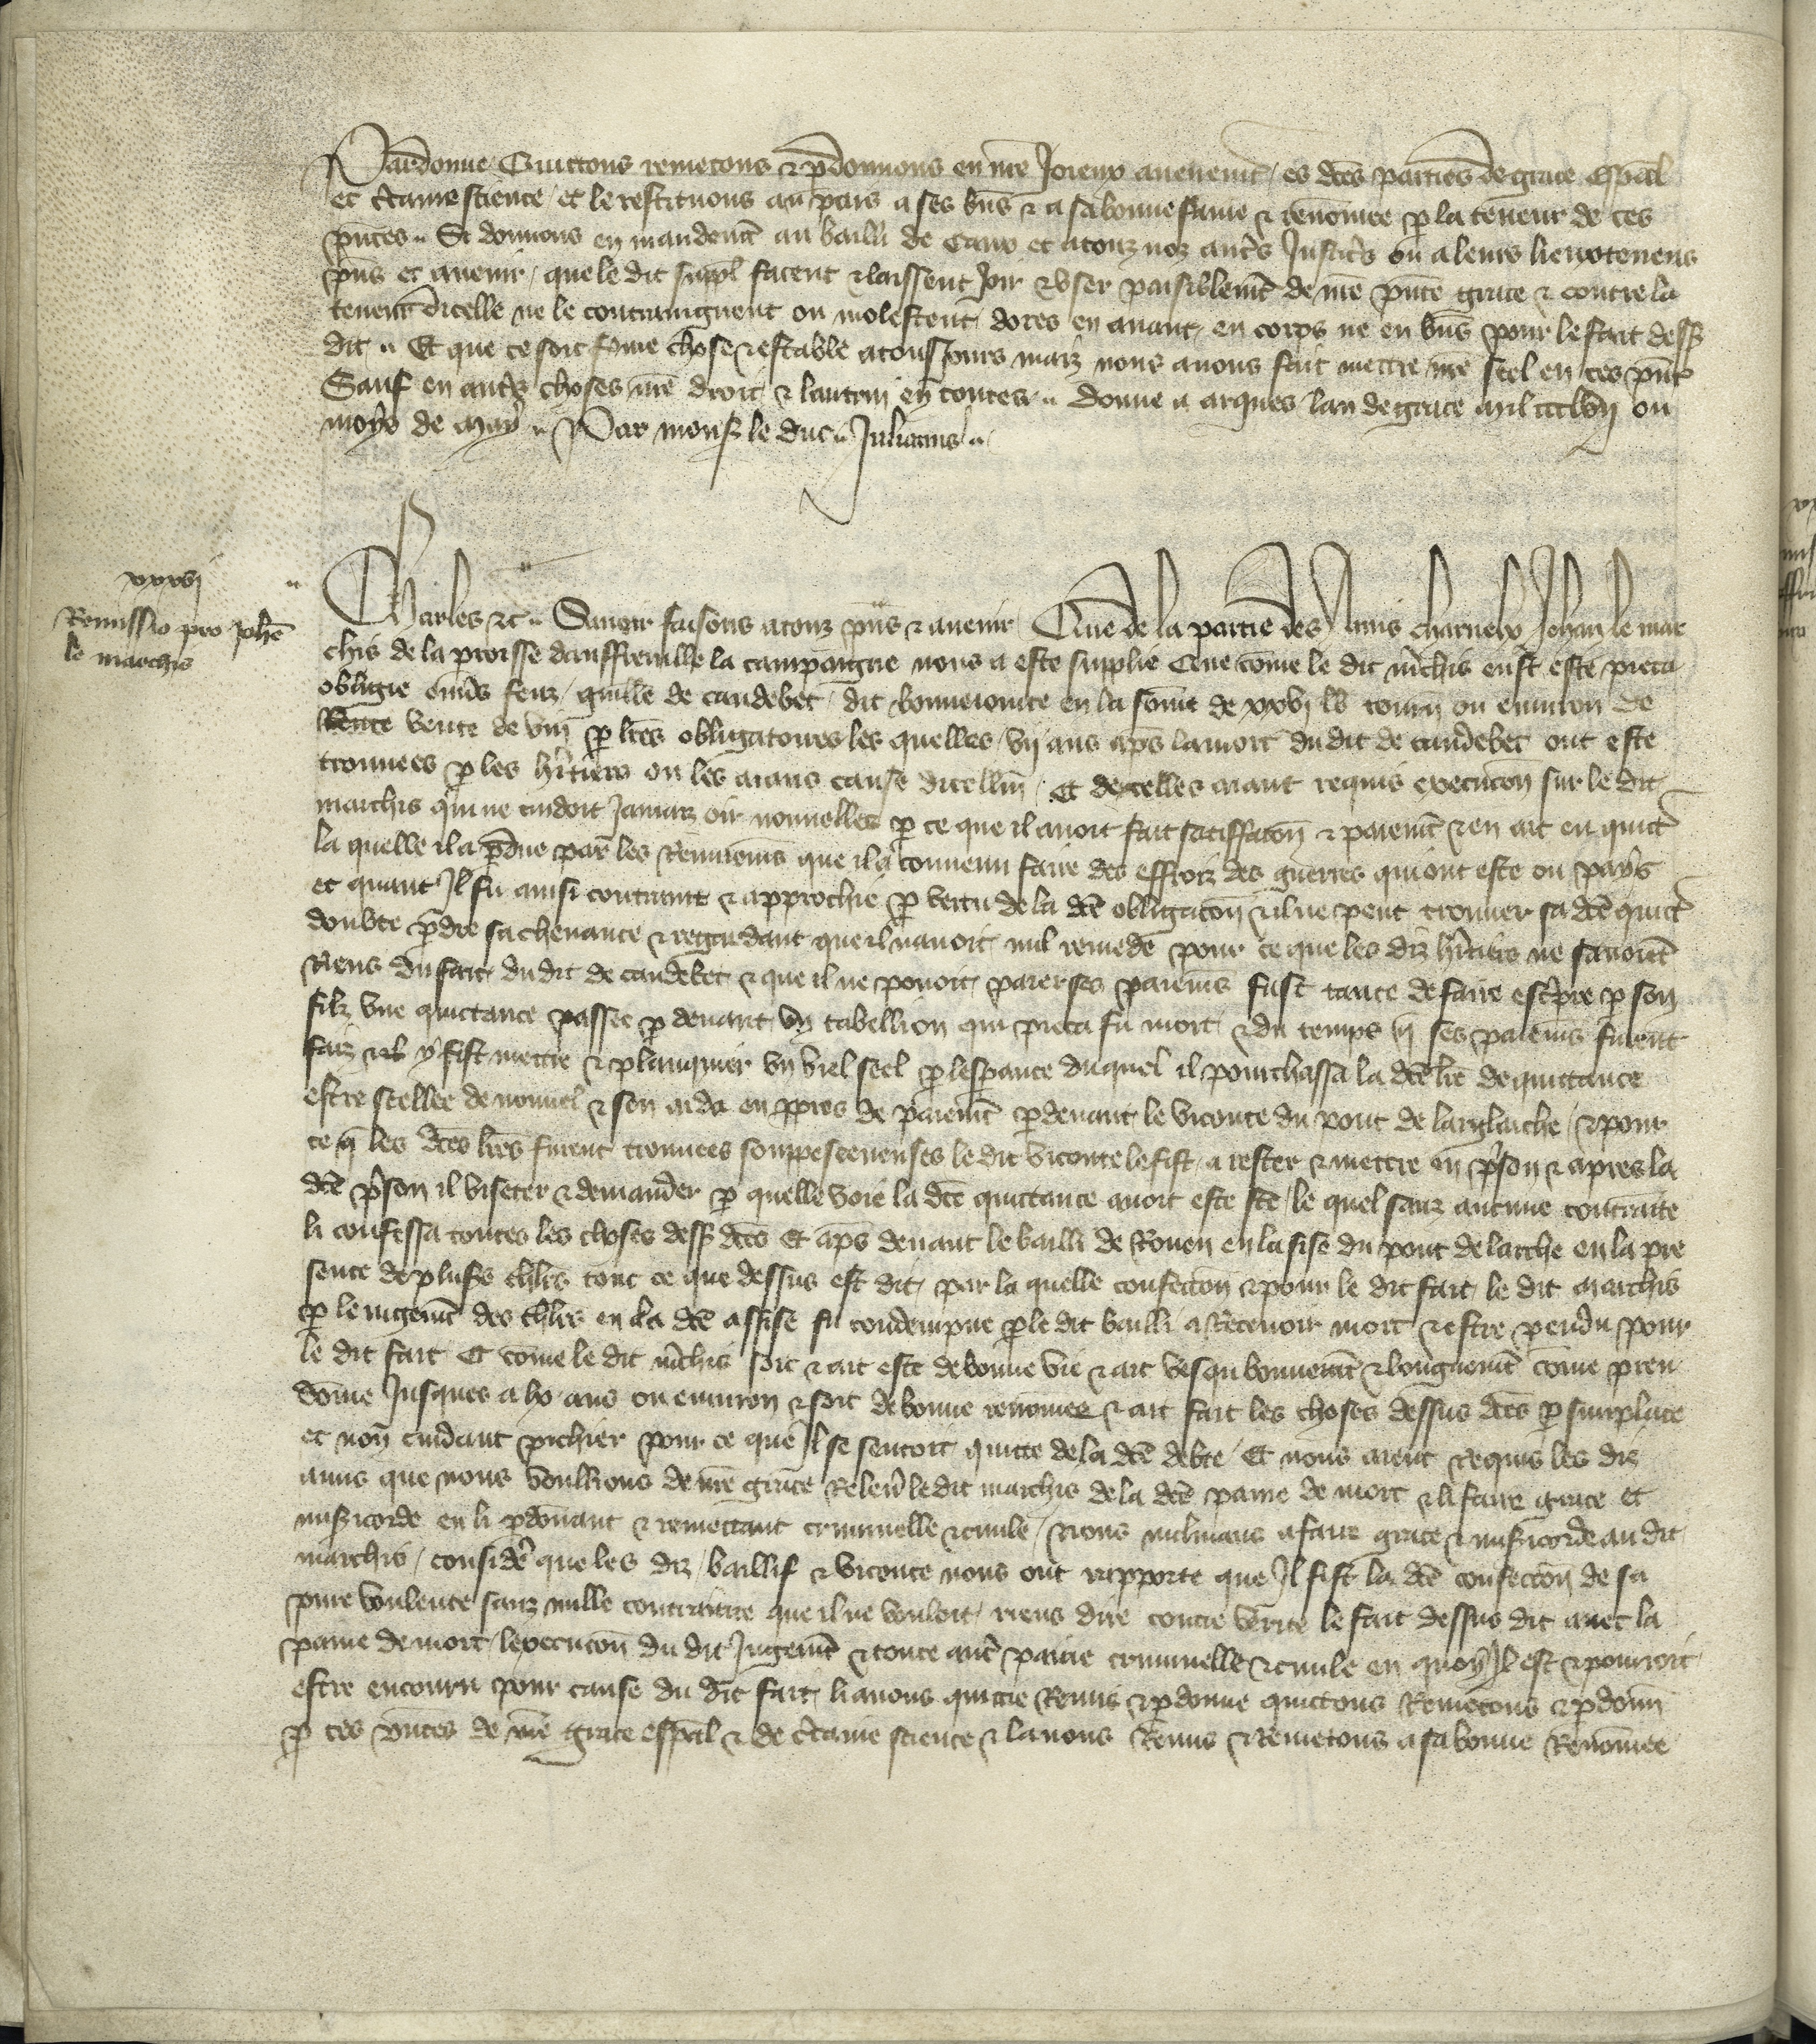 Pardonne Quittons remetons & pdonnons en nre Joieux avenemt es dces parties de grace espeal
et ctaine science et le restituons au pais a ses bns & a sa bonne fame & renomee p la teneur de ces
pntes Si donnons en mandemt au bailli de Caux et a touz noz autrs Justicrs ou a leurs lieuxtenens
pns et avenir que le dit suppl facent & laissent Joir & user paisiblemt de nre pnte grace & contre la
teneur dicelle ne le contraingnent ou molestent dores en avant en corps ne en bns pour le fait dess
dit Et que ce soit fme chose & estable a tousjours maiz nous avons fait mettre nre scel en ces pnt
Sauf en autrs choses nre droit & lautrui en toutes donne a arques lan de grace mil ccclvij ou
moys de May Par mons le duc Julianus
xxxvj
Remissio pro Johe
le marchis
Charles &c Savoir faisons a touz pns & avenir Que de la partie des Amis charnelx Jehan le mar
chis de la proisse dauffreville la campaigne nous a este supplie Que come le dit mchis eust este pieca
obligie envrs feuz guille de caudebec dit bonneionte en la some de xxvj lb tourn ou environ de
vente de vin p lres obligatoires les quelles vij ans aps la mort du dit de caudebec ont este
trouvees p les hritiers ou les aians cause dicellui Et de icelles aiant requis execucon sur le dit
marchis qui ne cuidoit Jamaiz oir nouvelles p ce que il avoit fait satiffacon & paiemt & en ait eu quict
la quelle il a pdue par les Remuemens que il a convenu faire des effroiz des guerres qui ont este ou pays
et quant Il fu ainsi contraint & approchie p vertu de la dce obligacon & il ne peut trouver sa dce quict
doubte pdre sa chevance & regardant que il navoit nul remede pour ce que les diz hritiers ne savoient
Riens du fait du dit de caudebec & que il ne povoit paier ses paiemns fust tante de faire escpre p son
filz une quictance passee p devant un tabellion qui pieca fu mort & du temps q ses paiemns furent
faiz & il y fist mettre & planquier un viel seel p lesperance duquel il pourchassa la dce lre de quittance
estre scellee de nouvel & sen aida en ppres de paiemt pdevant le viconte du pont de larglarche & pour
ce q les dces lres furent trouvees souppesceneuses le dit viconte le fist arester & mettre en pson & apres la
dce pson il viseter & demander p quelle voie la dce quittance avoit este fce le quel sanz aucune contrainte
li confessa toutes les choses dess dces Et aps devant le bailli de Rouen en lasise du pont de larche en la pre
sence de plusrs chlrs tout ce que dessus est dit par la quelle confecion & pour le dit fait le dit marchis
p le iugemt des chlrs en la dce assise fu condempne p le dit bailli a Recevoir mort & estre pendu pour
le dit fait Et come le dit mchis soit & ait este de bonne vie & ait vesqu bonnemt & longuemt come preu
dome Jusques a lx ans ou environ & soit de bonne renomee & ait fait les choses dessus dces p simplace
et non cuidant pechier pour ce que Il se sentoit quitte de la dce debte Et nous aient Requis les dis
amis que nous voullions de nre grace Relevr le dit marchis de la dce paine de mort & li faire grace et
misricorde en li pdonant & remettant criminelle & civile Nous inclinans a faire grace & misricorde au dit
marchis considere que les diz baillif & viconte nous ont rapporte que Il fist la dce confecion de sa
pure voulente sanz nulle contrainte que il ne vouloit riens dire contre verite le fait dessus dit avec la
paine de mort lexecucon du dit Jugemt & toute autr paine criminelle & civile en quoy Il est & pourroit
estre encouru pour cause du dit fait li avons quictie Remis & pdonne quictons Remetons & pdonn
p ces pntes de nre grace espeal & de ctaine science & lavons Remis & Remetons a sa bonne Renomee